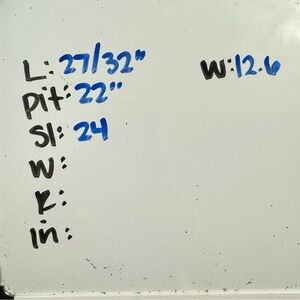 L: 27/32"
W: 12.6
pit: 22"
Sl: 24
W:
R:
in: